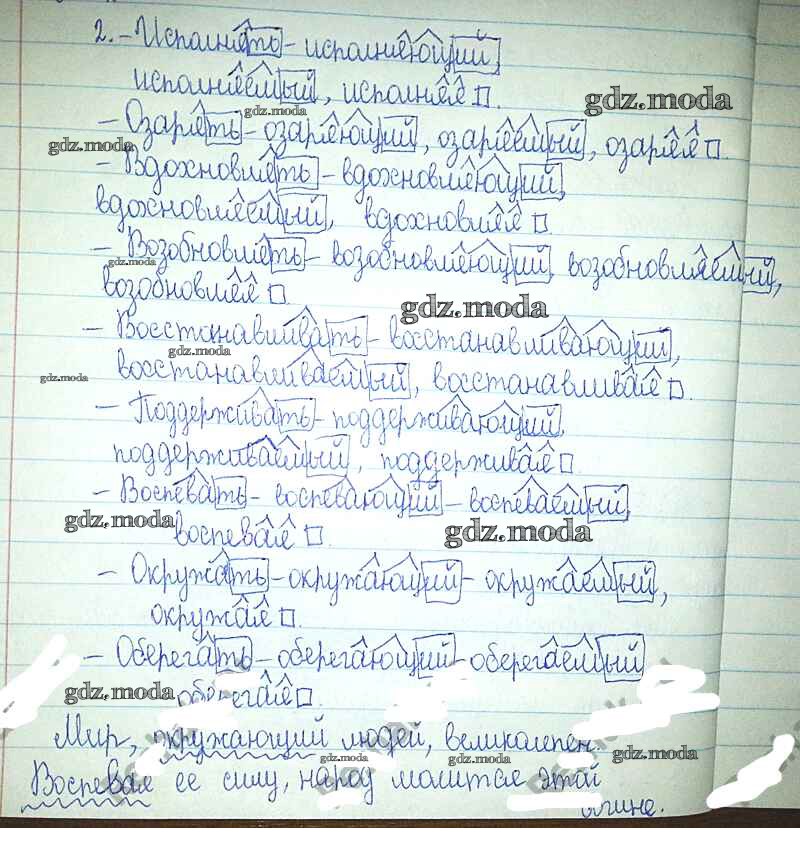 2. - Исполнять - исполняющий,
исполняемый, исполняя.
gdz.moda
gdz.moda
- Озарять - озаряющий, озаряемый, озаряя.
gdz.moda
- Вдохновлять - вдохновляющий,
вдохновляемый, вдохновляя.
- Возобновлять - возобновляющий, возобновляемый,
gdz.moda
возобновляя.
gdz.moda
- Восстанавливать - восстанавливающий,
gdz.moda
восстанавливаемый, восстанавливая.
gdz.moda
- Поддерживать - поддерживающий,
поддерживаемый, поддерживая.
- Воспевать - воспевающий - воспеваемый,
gdz.moda
воспевая.
gdz.moda
- Окружать - окружающий - окружаемый,
окружая.
- Оберегать - оберегающий - оберегаемый
gdz.moda
оберегая.
Мир, окружающий людей, великолепен.
gdz.moda
gdz.moda
gdz.moda
Воспевая ее силу, народ молится этой